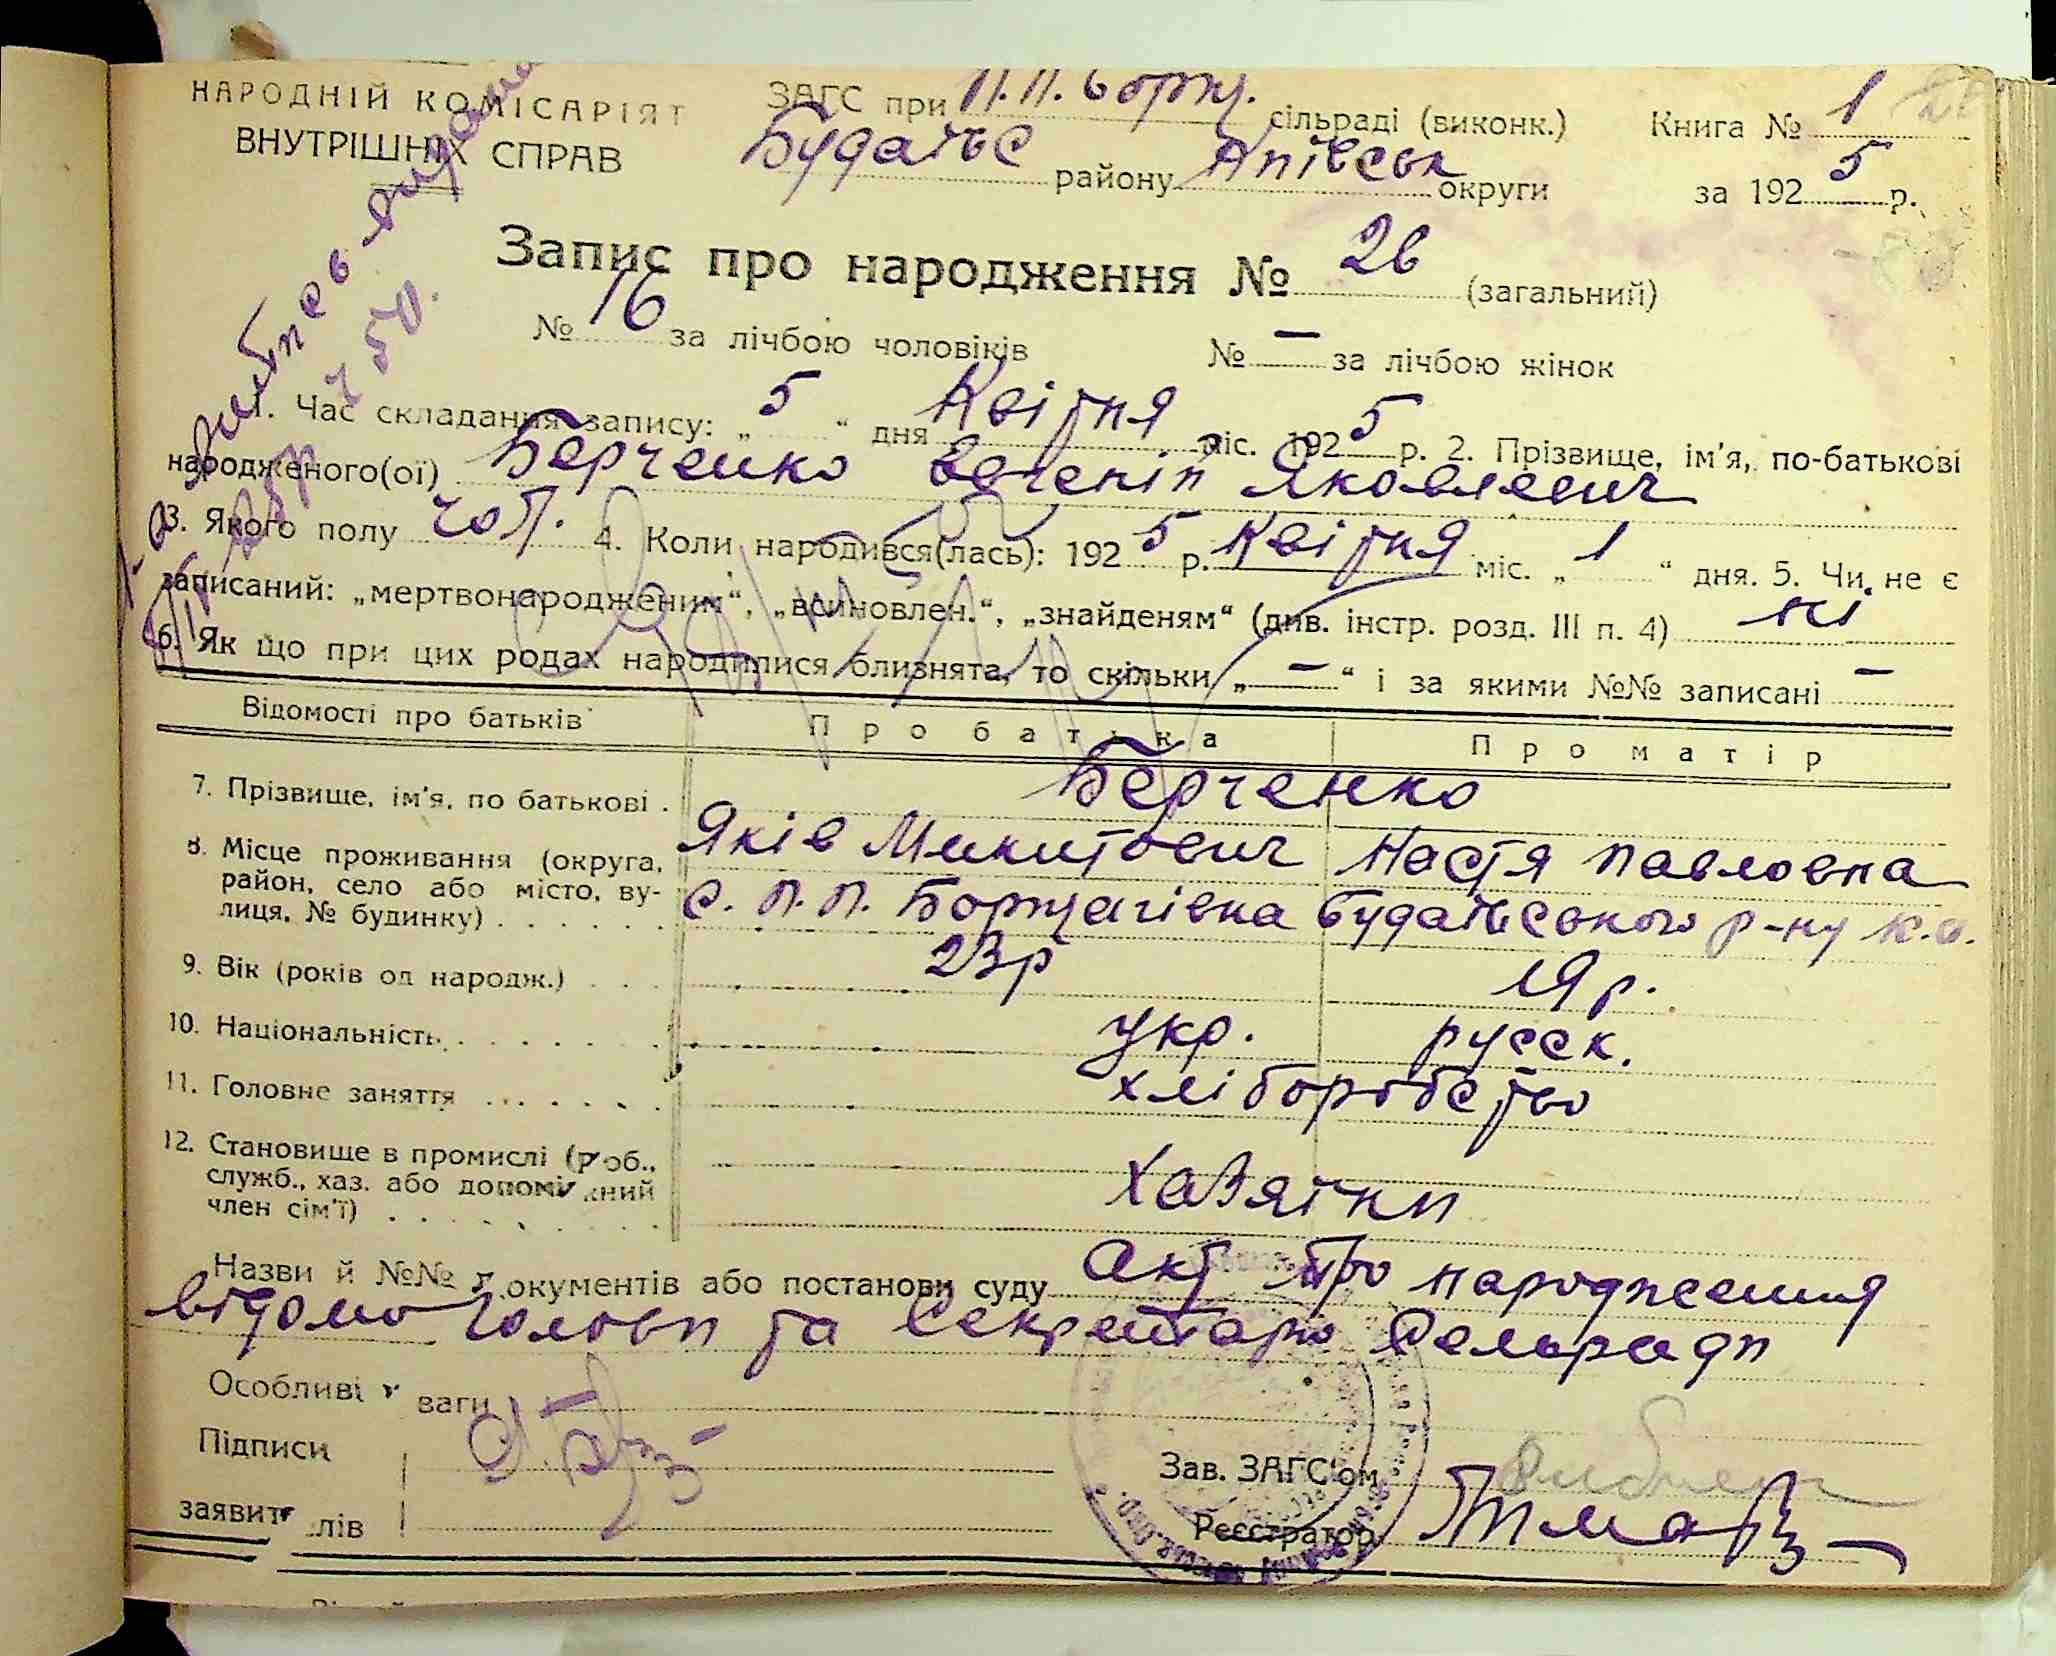 НАРОДНІЙ КОМІСАРІЯТ
ВНУТРІШНІХ СПРАВ
ЗАГС при П.П. Борщ. сільраді (виконк.) Книга № 1
району округи за 1925 р.
Запис про народження № 26 (загальний)
№ 16 за лічбою чоловіків № — за лічбою жінок
1. Час складання запису: „5“ дня Квітня міс. 1925 р. 2. Прізвище, ім'я, по-батькові
народженого(ої) Берченко Яковлевич
3. Якого полу чол. 4. Коли народився(лась): 1925 р. Квітня міс. „1“ дня. 5. Чи не є
записаний: „мертвонародженим“, „всиновлен.“, „знайденям“ (див. інстр. розд. III п. 4) ні
6. Як що при цих родах народилися близнята, то скільки „—“ і за якими №№ записані —
Відомості про батьків Про батька Про матір
7. Прізвище, ім'я, по батькові . Берченко
Яків Микитович Настя Павловна
8. Місце проживання (округа, район, село або місто, вулиця, № будинку) с. П.П. Борщагівка Будаївського р-ну К.о.
9. Вік (років од народж.) 23р 19 р.
10. Національність укр. русск.
11. Головне заняття хліборобство
12. Становище в промислі (роб., служб., хаз. або допоміжний член сім'ї) Хазяїни
Назви й №№ документів або постанови суду Акт про народження
відомо Голови та Секретарю Сельради
Особливі уваги
Підписи
заявителів
Зав. ЗАГС'ом
Реєстратор